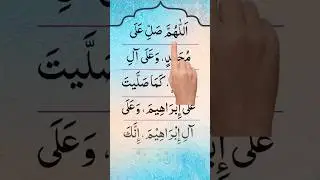 اَللّٰهُمَّ صَلِّ عَلَى
مُحَمَّدٍ، وَعَلَى آلِ
، كَمَا صَلَّيْتَ
عَلَى إِبْرَاهِيمَ، وَعَلَى
آلِ إِبْرَاهِيْمَ، إِنَّكَ